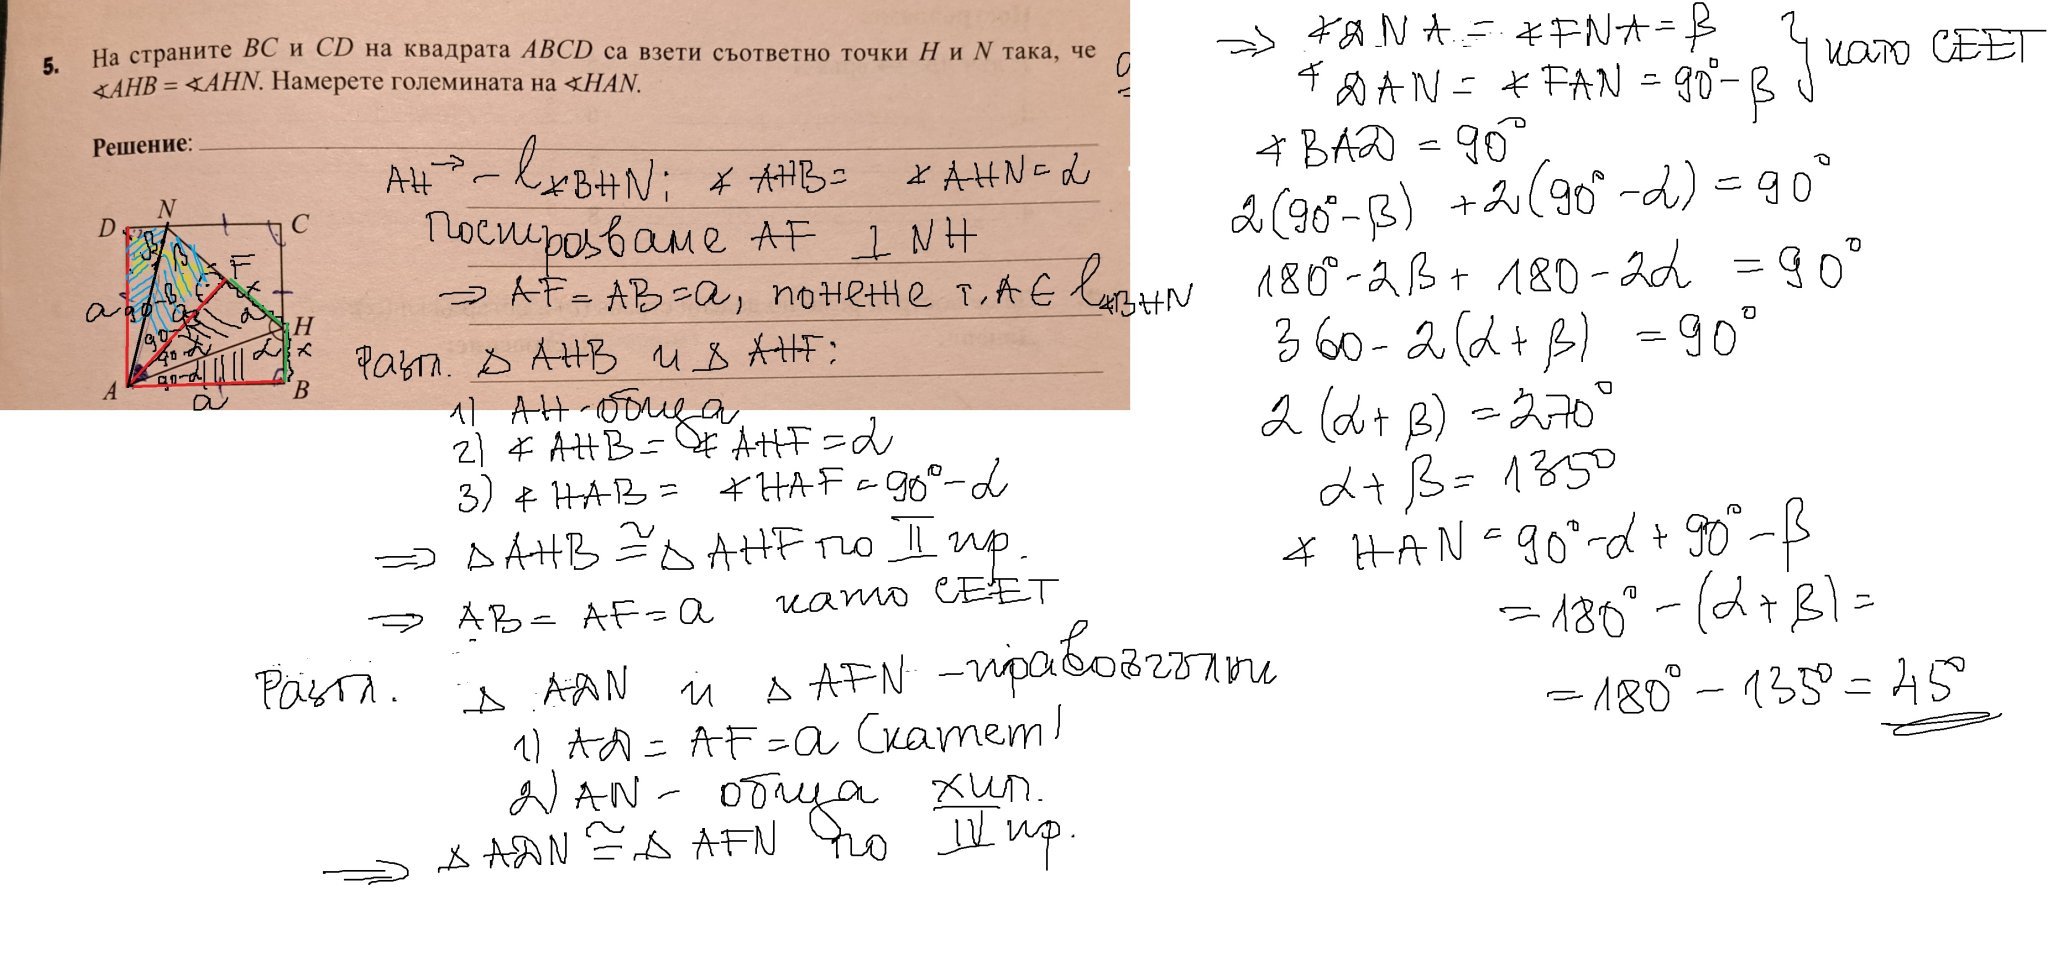 5. На страните BC и CD на квадрата ABCD са взети съответно точки H и N така, че
∢AHB = ∢AHN. Намерете големината на ∢HAN.
Решение:
AH→ - l∢BHN; ∢ AHB = ∢ AHN = α
Построяваме AF ⊥ NH
⇒ AF = AB = a, понеже т. A ∈ l∢BHN
Разгл. △ AHB и △ AHF:
1) AH - обща
2) ∢ AHB = ∢ AHF = α
3) ∢ HAB = ∢ HAF = 90° - α
⇒ △ AHB ≅ △ AHF по II пр.
⇒ AB = AF = a като СЕЕТ
Разгл. △ ADN и △ AFN - правоъгълни
1) AD = AF = a (катет)
2) AN - обща хип.
⇒ △ ADN ≅ △ AFN по IV пр.
D N C
β β F x
a 90-β a α H
90-β 90-α α x
A 90-α B
a
⇒ ∢ DNA = ∢ FNA = β } като СЕЕТ
∢ DAN = ∢ FAN = 90° - β
∢ BAD = 90°
2(90° - β) + 2(90° - α) = 90°
180° - 2β + 180 - 2α = 90°
360 - 2(α + β) = 90°
2(α + β) = 270°
α + β = 135°
∢ HAN = 90° - α + 90° - β
= 180° - (α + β) =
= 180° - 135° = 45°